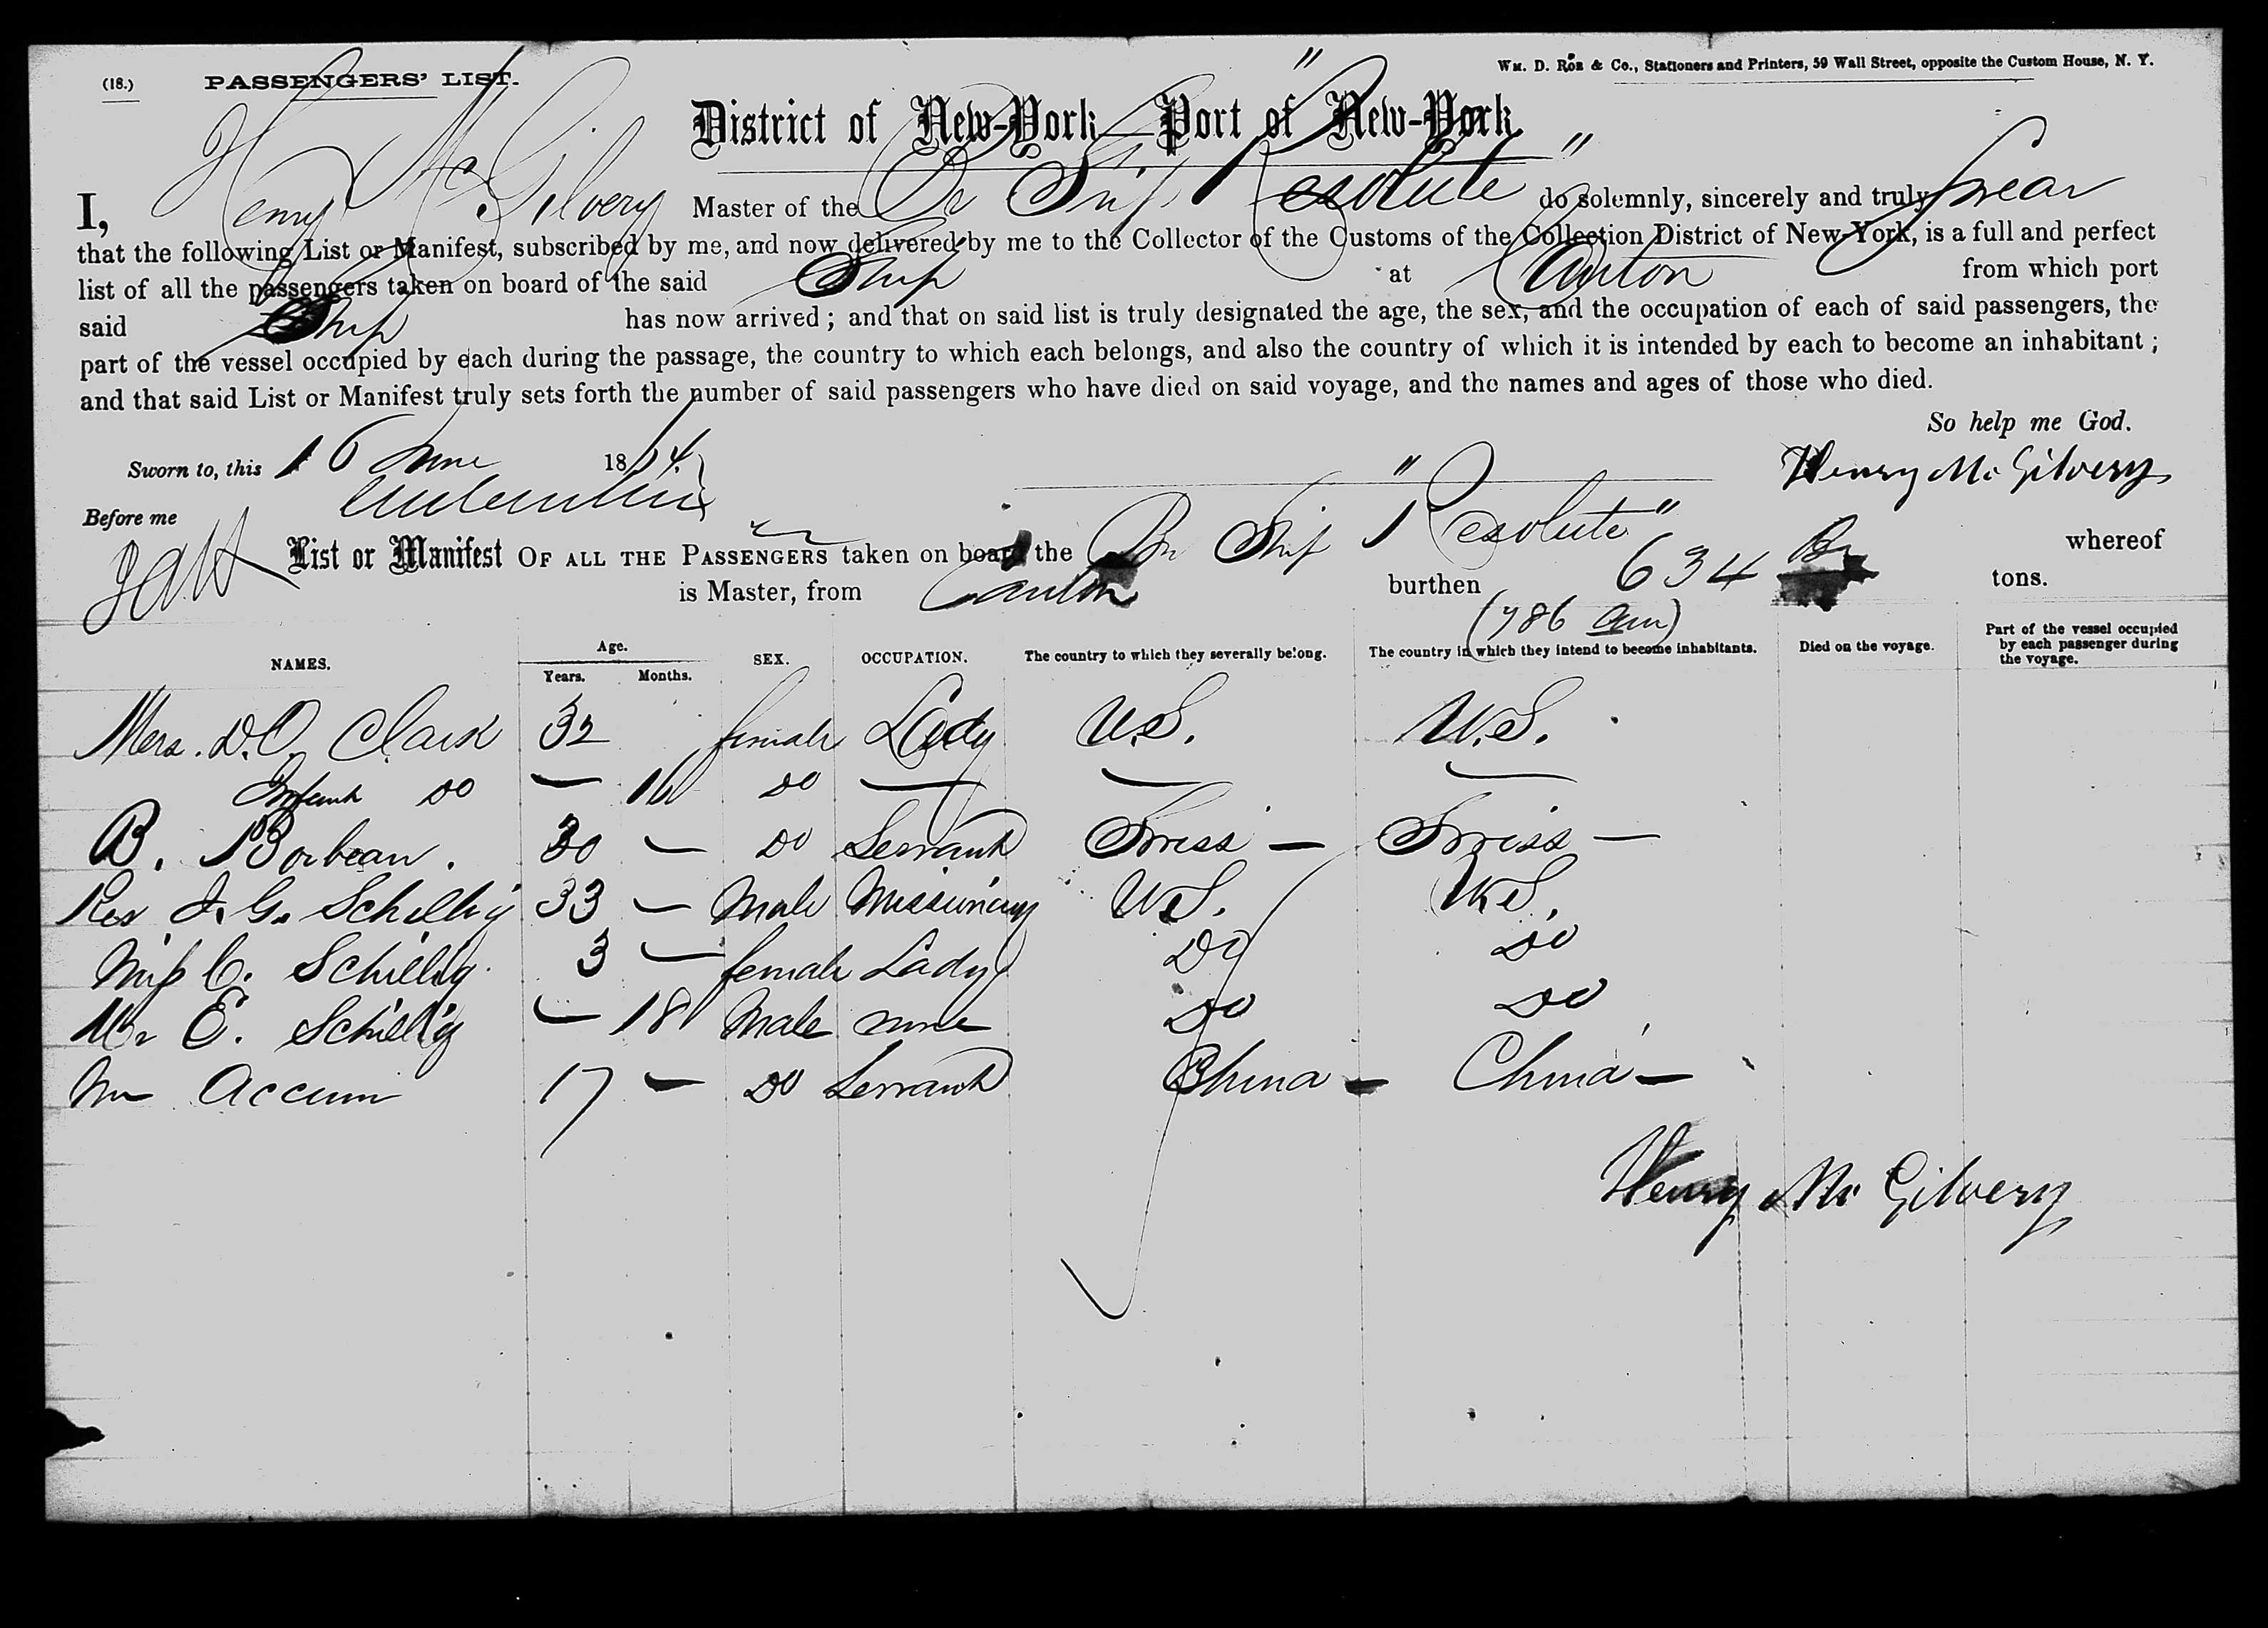 (18.) PASSENGERS' LIST.
Wm. D. Roe & Co., Stationers and Printers, 59 Wall Street, opposite the Custom House, N. Y.
District of New-York—Port of New-York
I, Henry McGilvery Master of the Br Ship "Resolute" do solemnly, sincerely and truly swear
that the following List or Manifest, subscribed by me, and now delivered by me to the Collector of the Customs of the Collection District of New-York, is a full and perfect
list of all the passengers taken on board of the said Ship at Canton from which port
said Ship has now arrived; and that on said list is truly designated the age, the sex, and the occupation of each of said passengers, the
part of the vessel occupied by each during the passage, the country to which each belongs, and also the country of which it is intended by each to become an inhabitant;
and that said List or Manifest truly sets forth the number of said passengers who have died on said voyage, and the names and ages of those who died.
So help me God.
Sworn to, this 16 June 1854. Henry McGilvery
Before me
List or Manifest OF ALL THE PASSENGERS taken on board the Br Ship "Resolute" whereof
is Master, from Canton burthen 634 Br tons.
(786 Am)
NAMES. Age. Years. Months. SEX. OCCUPATION. The country to which they severally belong. The country in which they intend to become inhabitants. Died on the voyage. Part of the vessel occupied by each passenger during the voyage.
Mers. D.O. Clark 32 female Lady U.S. U.S.
Infant Do — 16 Do — — —
B. Borbeau. 30 — Do Servant Swiss — Swiss —
Rev J. G. Schilling 33 — Male Missionary U.S. U.S.
Miss C. Schilling 3 — female Lady Do Do
Mr E. Schilling — 18 Male none Do Do
Mr Accum 17 — Do Servant China — China —
Henry McGilvery